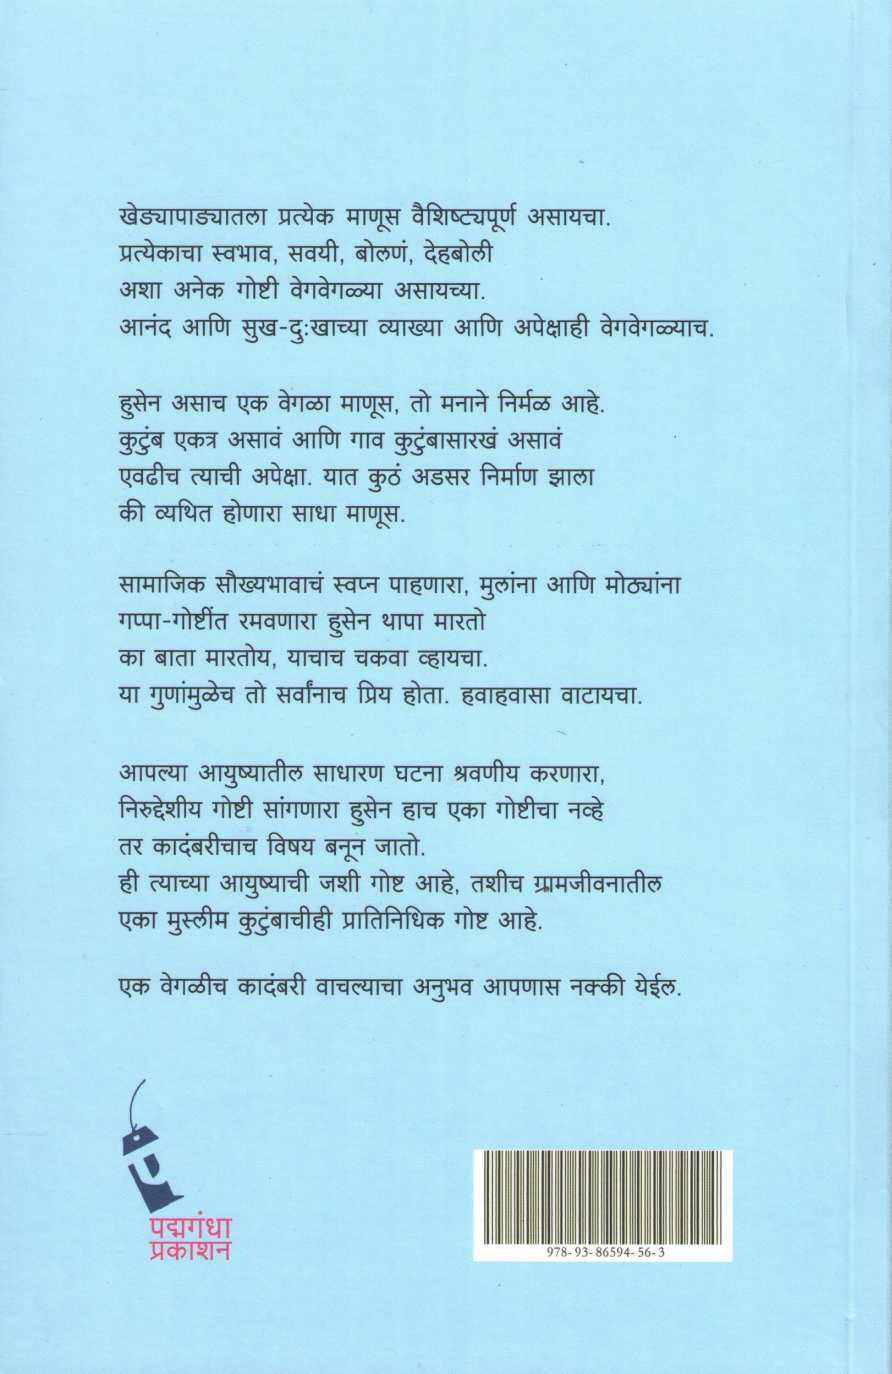 खेड्यापाड्यातला प्रत्येक माणूस वैशिष्ट्यपूर्ण असायचा.
प्रत्येकाचा स्वभाव, सवयी, बोलणं, देहबोली
अशा अनेक गोष्टी वेगवेगळ्या असायच्या.
आनंद आणि सुख-दुःखाच्या व्याख्या आणि अपेक्षाही वेगवेगळ्याच.
हुसेन असाच एक वेगळा माणूस, तो मनाने निर्मळ आहे.
कुटुंब एकत्र असावं आणि गाव कुटुंबासारखं असावं
एवढीच त्याची अपेक्षा. यात कुठं अडसर निर्माण झाला
की व्यथित होणारा साधा माणूस.
सामाजिक सौख्यभावाचं स्वप्न पाहणारा, मुलांना आणि मोठ्यांना
गप्पा-गोष्टींत रमवणारा हुसेन थापा मारतो
का बाता मारतोय, याचाच चकवा व्हायचा.
या गुणांमुळेच तो सर्वांनाच प्रिय होता. हवाहवासा वाटायचा.
आपल्या आयुष्यातील साधारण घटना श्रवणीय करणारा,
निरुद्देशीय गोष्टी सांगणारा हुसेन हाच एका गोष्टीचा नव्हे
तर कादंबरीचाच विषय बनून जातो.
ही त्याच्या आयुष्याची जशी गोष्ट आहे, तशीच ग्रामजीवनातील
एका मुस्लीम कुटुंबाचीही प्रातिनिधिक गोष्ट आहे.
एक वेगळीच कादंबरी वाचल्याचा अनुभव आपणास नक्की येईल.
पद्मगंधा
प्रकाशन
978-93-86594-56-3